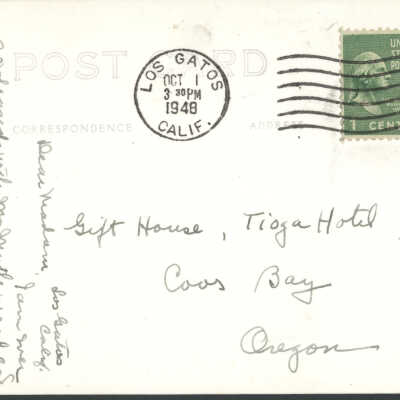 POST CARD
LOS GATOS
OCT 1
3 30 PM
1948
CALIF.
UN
ST
PO
1 CENT
CORRESPONDENCE
ADDRESS
Gift House, Tioga Hotel,
Coos Bay
Oregon
Los Gatos
Caly.
Dear Madam,
I am over